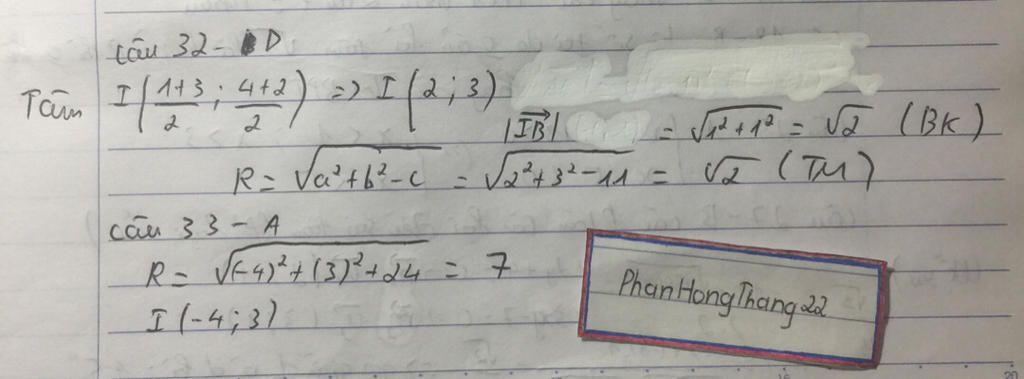 Câu 32 - D
Tâm I(1+3/2 ; 4+2/2) => I(2 ; 3)
|IB→| = √1²+1² = √2 (BK)
R = √a²+b²-c = √2²+3²-11 = √2 (TM)
Câu 33 - A
R = √(-4)²+(3)²+24 = 7
I(-4 ; 3)
PhanHongThang22